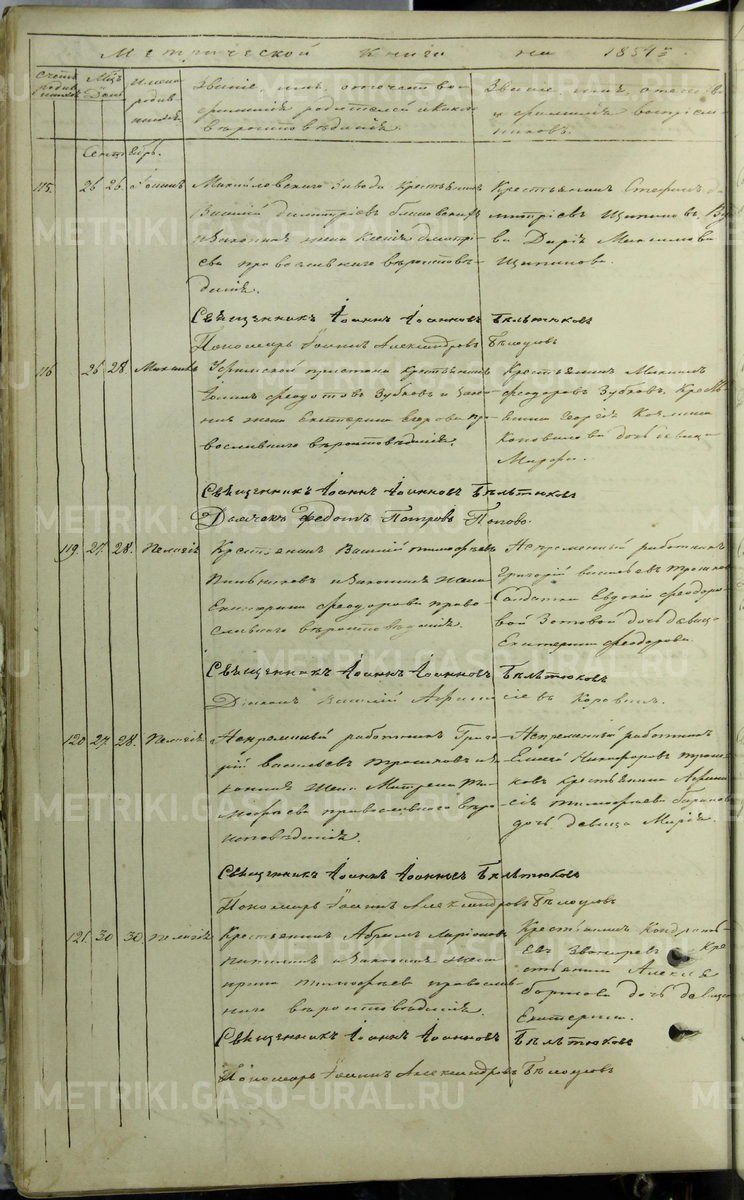 Метрической книги на 1857й
Счетъ родив
Мѣс День
Имена родив шихся
Званіе, имя, отечество и фамилія родителей и какого вѣроисповѣданія.
Званіе, имя, отечество и фамилія воспріем никовъ.
Сентябрь.
26 26. Іоаннъ
Михайловскаго Завода крестьянинъ
Василій Димитріевъ
и законная жена Ксенія Дмитрі
ева православнаго вѣроисповѣ
данія.
Крестьянинъ Стефанъ Ди
митріевъ Щипановъ, Вдо
ва Дарья Максимова
Щипанова.
Священникъ Іоаннъ Іоанновъ Бѣлѣтюковъ
Пономарь Іоаннъ Александровъ Бѣлоусовъ
26 28. Михаилъ
Уфимской пристани крестьянинъ
Іоаннъ Федотовъ Зубковъ и закон
ная жена Екатерина Егорова пра
вославнаго вѣроисповѣданія.
Крестьянинъ Михаилъ
Феодоровъ Зубковъ, Кресть
янина Георгія Козмина
Коновалова дочь девица
Марфа.
Священникъ Іоаннъ Іоанновъ Бѣлѣтюковъ
Дьячекъ Федотъ Петровъ Поповъ.
119. 27. 28. Пелагія
Крестьянинъ Василій Тимофѣевъ
и законная жена
Екатерина Феодорова право
славнаго вѣроисповѣданія
Непременный работникъ
Григорій Васильевъ Трошковъ
Солдатки Евдокіи Феодоро
вой Зотовой дочь девица
Екатерина Феодорова.
Священникъ Іоаннъ Іоанновъ Бѣлѣтюковъ
Діаконъ Василій Афанасіевъ Коровинъ.
120 27. 28. Пелагія
Непременный работникъ Григо
рій Васильевъ Трошковъ и за
конная жена Матрена Ти
мофѣева православнаго вѣро
исповѣданія.
Непременный работникъ
Елисей Никифоровъ Трош
ковъ крестьянина Афана
сія Тимофѣева
дочь девица Марія.
Священникъ Іоаннъ Іоанновъ Бѣлѣтюковъ
Пономарь Іоаннъ Александровъ Бѣлоусовъ
121. 30 30. Пелагія
Крестьянинъ Абрамъ Ларіоновъ
и законная жена
Ирина Тимофѣева православ
наго вѣроисповѣданія.
Крестьянинъ Кондрать
евъ Звонаревъ Кре
стьянина Алексѣя
дочь девица
Екатерина.
Священникъ Іоаннъ Іоанновъ Бѣлѣтюковъ
Пономарь Іоаннъ Александровъ Бѣлоусовъ
METRIKI.GASO-URAL.RU